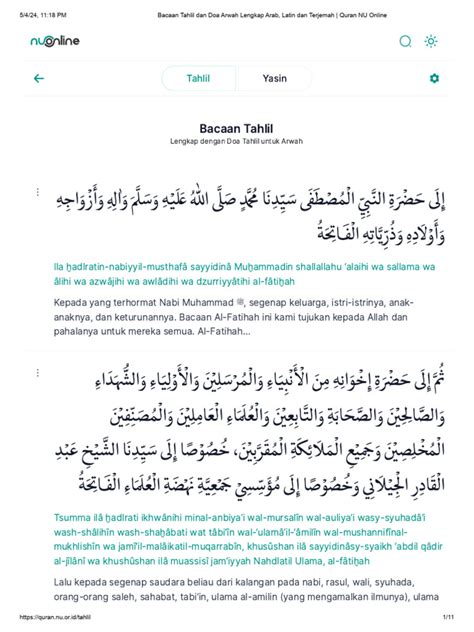 5/4/24, 11:18 PM Bacaan Tahlil dan Doa Arwah Lengkap Arab, Latin dan Terjemah | Quran NU Online
nuonline
Tahlil Yasin
Bacaan Tahlil
Lengkap dengan Doa Tahlil untuk Arwah
إِلَى حَضْرَةِ النَّبِيِّ الْمُصْطَفَى سَيِّدِنَا مُحَمَّدٍ صَلَّى اللهُ عَلَيْهِ وَسَلَّمَ وَاٰلِهِ وَأَزْوَاجِهِ
وَأَوْلَادِهِ وَذُرِّيَّاتِهِ الْفَاتِحَةُ
Ila ḫadlratin-nabiyyil-musthafâ sayyidinâ Muḫammadin shallallahu ‘alaihi wa sallama wa
âlihi wa azwâjihi wa awlâdihi wa dzurriyyâtihi al-fâtiḫah
Kepada yang terhormat Nabi Muhammad ﷺ, segenap keluarga, istri-istrinya, anak-
anaknya, dan keturunannya. Bacaan Al-Fatihah ini kami tujukan kepada Allah dan
pahalanya untuk mereka semua. Al-Fatihah...
ثُمَّ إِلَى حَضْرَةِ إِخْوَانِهِ مِنَ الْأَنْبِيَاءِ وَالْمُرْسَلِيْنَ وَالْأَوْلِيَاءِ وَالشُّهَدَاءِ
وَالصَّالِحِيْنَ وَالصَّحَابَةِ وَالتَّابِعِيْنَ وَالْعُلَمَاءِ الْعَامِلِيْنَ وَالْمُصَنِّفِيْنَ
الْمُخْلِصِيْنَ وَجَمِيْعِ الْمَلَائِكَةِ الْمُقَرَّبِيْنَ، خُصُوْصًا إِلَى سَيِّدِنَا الشَّيْخِ عَبْدِ
الْقَادِرِ الْجِيْلَانِي وَخُصُوْصًا إِلَى مُؤَسِّسِيْ جَمْعِيَّةِ نَهْضَةِ الْعُلَمَاءِ الْفَاتِحَةُ
Tsumma ilâ ḫadlrati ikhwânihi minal-anbiya'i wal-mursalîn wal-auliya'i wasy-syuhadâ'i
wash-shâliḫîn wash-shaḫâbati wat tâbi'în wal-‘ulamâ'il-‘âmilîn wal-mushannifînal-
mukhlishîn wa jamî'il-malâikatil-muqarrabîn, khusûshan ilâ sayyidinâsy-syaikh ‘abdil qâdir
al-jîlânî wa khushûshan ilâ muassisî jam'iyyah Nahdlatil Ulama, al-fâtiḫah
Lalu kepada segenap saudara beliau dari kalangan pada nabi, rasul, wali, syuhada,
orang-orang saleh, sahabat, tabi'in, ulama al-amilin (yang mengamalkan ilmunya), ulama
https://quran.nu.or.id/tahlil 1/11